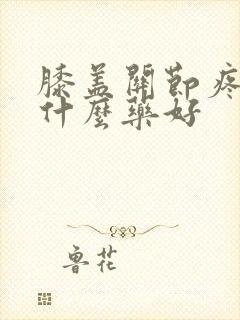 膝盖關節疼
什麼藥好
魯花